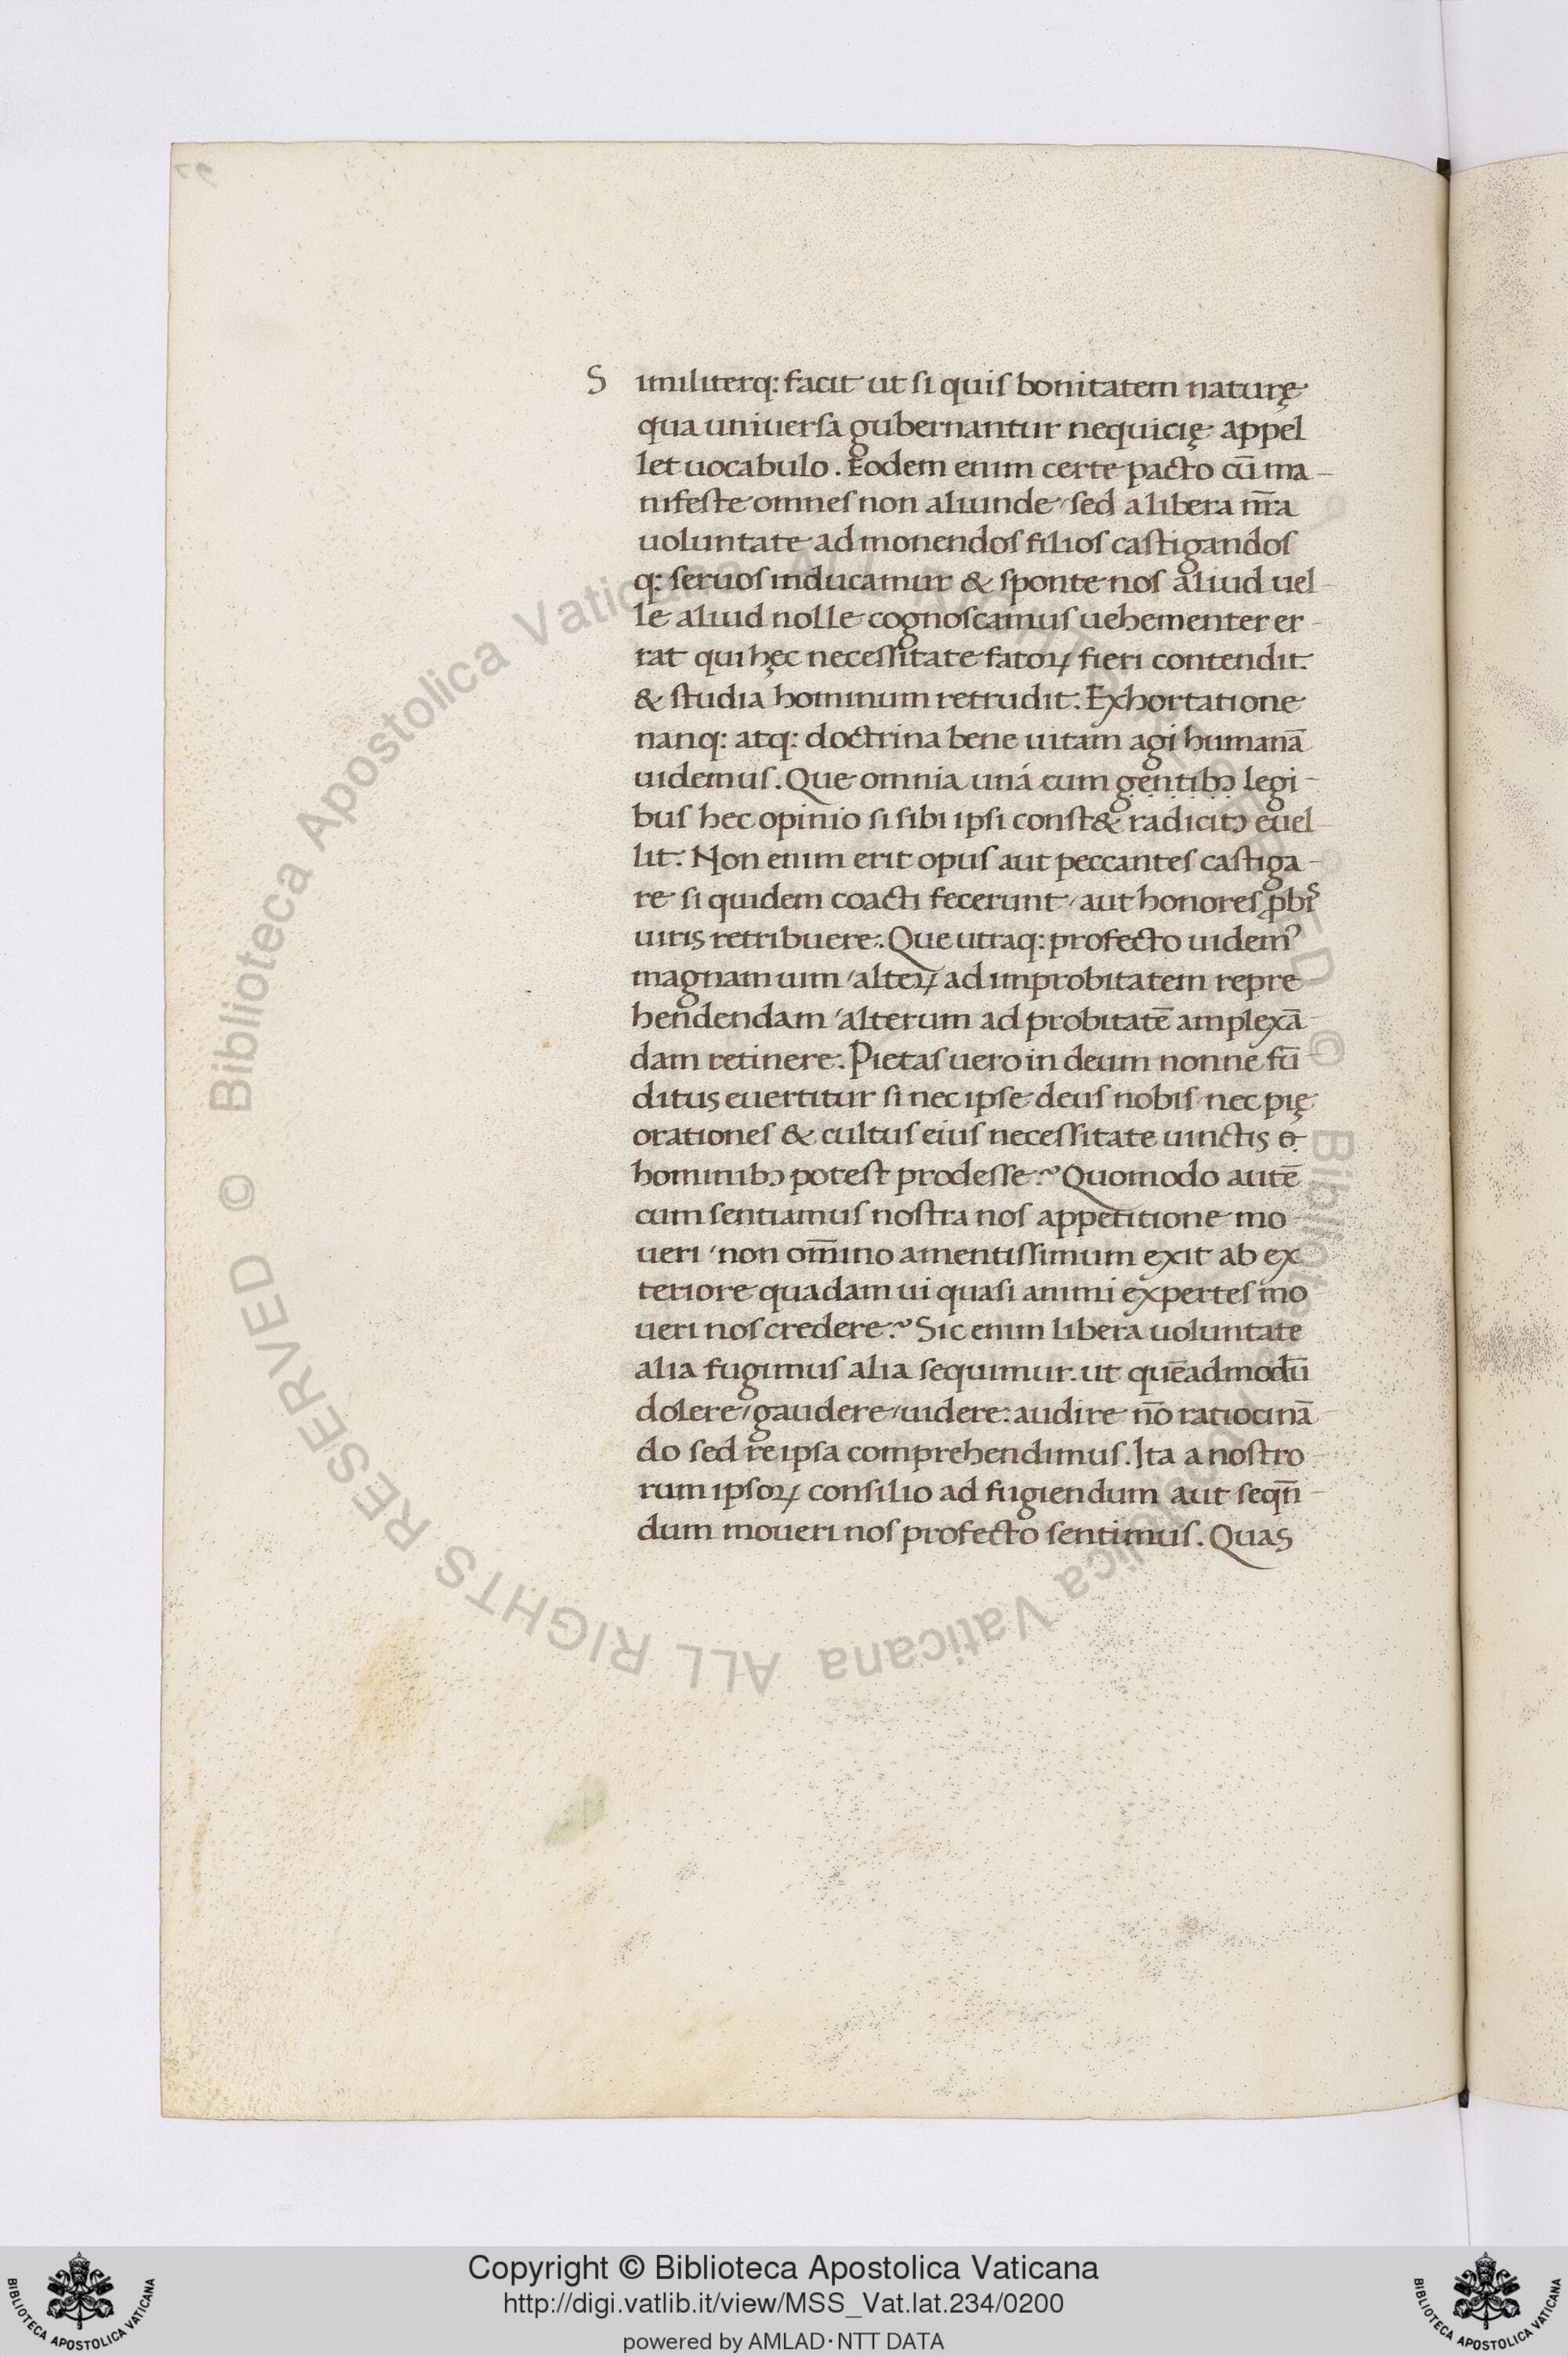 Similiterq: facit ut si quis bonitatem naturę
qua uniuersa gubernantur nequicię appel
let uocabulo. Eodem enim certe pacto cū ma-
nifeste omnes non aliunde, sed a libera nr̄a
uoluntate admonendos filios castigandos
q: seruos inducamur & sponte nos aliud uel-
le aliud nolle cognoscamus uehementer er-
rat qui hęc necessitate fatoꝝ fieri contendit.
& studia hominum retrudit. Exhortatione
nanq: atq: doctrina bene uitam agi humanā
uidemus. Que omnia uná cum gentibꝰ legi-
bus hec opinio si sibi ipsi const& radicitꝰ euel-
lit. Non enim erit opus aut peccantes castiga-
re si quidem coacti fecerunt, aut honores ꝓbiˢ
uiris retribuere. Que utraq: profecto uidemꝰ
magnam uim, alteꝝ ad improbitatem repre
hendendam, alterum ad probitatē amplexā-
dam retinere. Pietas uero in deum nonne fū-
ditus euertitur si nec ipse deus nobis nec pię
orationes & cultus eius necessitate uinctis
hominibꝰ potest prodesse? Quomodo autē
cum sentiamus nostra nos appetitione mo-
ueri, non om̄ino amentissimum exit ab ex
teriore quadam ui quasi animi expertes mo
ueri nos credere? Sic enim libera uoluntate
alia fugimus alia sequimur. ut quēadmodū
dolere, gaudere, uidere: audire nō ratiocinā
do sed re ipsa comprehendimus. Ita a nostro-
rum ipsoꝝ consilio ad fugiendum aut seqn̄-
dum moueri nos profecto sentimus. Quas
© Biblioteca Apostolica Vaticana ALL RIGHTS RESERVED © Biblioteca Apostolica Vaticana ALL RIGHTS RESERVED
Copyright © Biblioteca Apostolica Vaticana
http://digi.vatlib.it/view/MSS_Vat.lat.234/0200
powered by AMLAD·NTT DATA
BIBLIOTECA APOSTOLICA VATICANA
BIBLIOTECA APOSTOLICA VATICANA